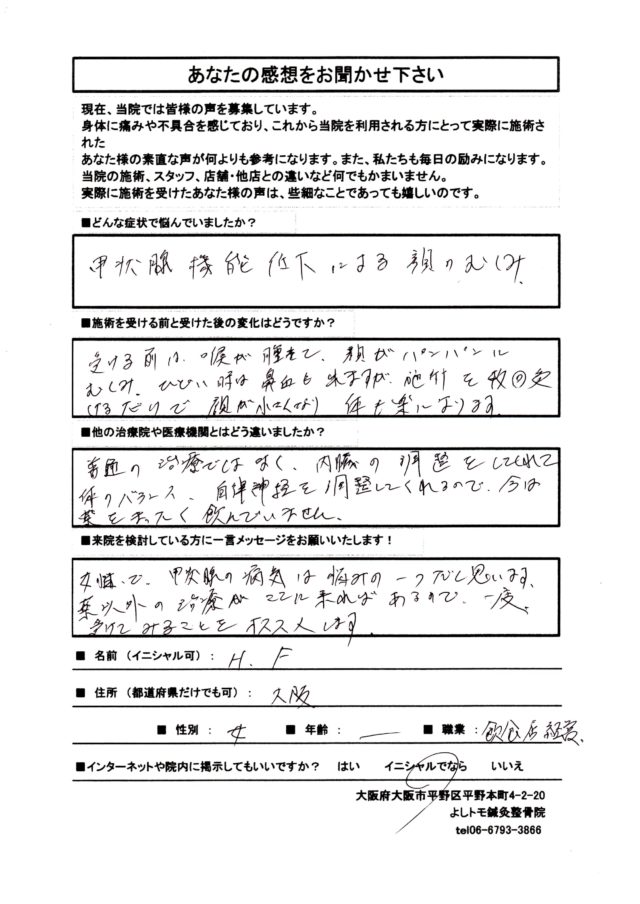 あなたの感想をお聞かせ下さい
現在、当院では皆様の声を募集しています。
身体に痛みや不具合を感じており、これから当院を利用される方にとって実際に施術さ
れた
あなた様の素直な声が何よりも参考になります。また、私たちも毎日の励みになります。
当院の施術、スタッフ、店舗・他店との違いなど何でもかまいません。
実際に施術を受けたあなた様の声は、些細なことであっても嬉しいのです。
■どんな症状で悩んでいましたか？
甲状腺機能低下による顔のむくみ
■施術を受ける前と受けた後の変化はどうですか？
受ける前は、喉が腫れて、顔がパンパンに
むくみ、ひどい時は鼻血も出ますが、施術を数回受
けるだけで顔が小さくなり 体も楽になります。
■他の治療院や医療機関とはどう違いましたか？
普通の治療ではなく、内臓の調整をしてくれて
体のバランス、自律神経を調整してくれるので、今は
薬をまったく飲んでいません。
■来院を検討している方に一言メッセージをお願いいたします！
女性で、甲状腺の病気は悩みの一つだと思います、
薬以外の治療がここに来ればあるので、一度、
受けてみることをオススメします。
■ 名前（イニシャル可）： H.F
■ 住所（都道府県だけでも可）： 大阪
■ 性別： 女 ■ 年齢： — ■ 職業： 飲食店経営
■インターネットや院内に掲示してもいいですか？ はい イニシャルでなら いいえ
大阪府大阪市平野区平野本町4-2-20
よしトモ鍼灸整骨院
tel06-6793-3866